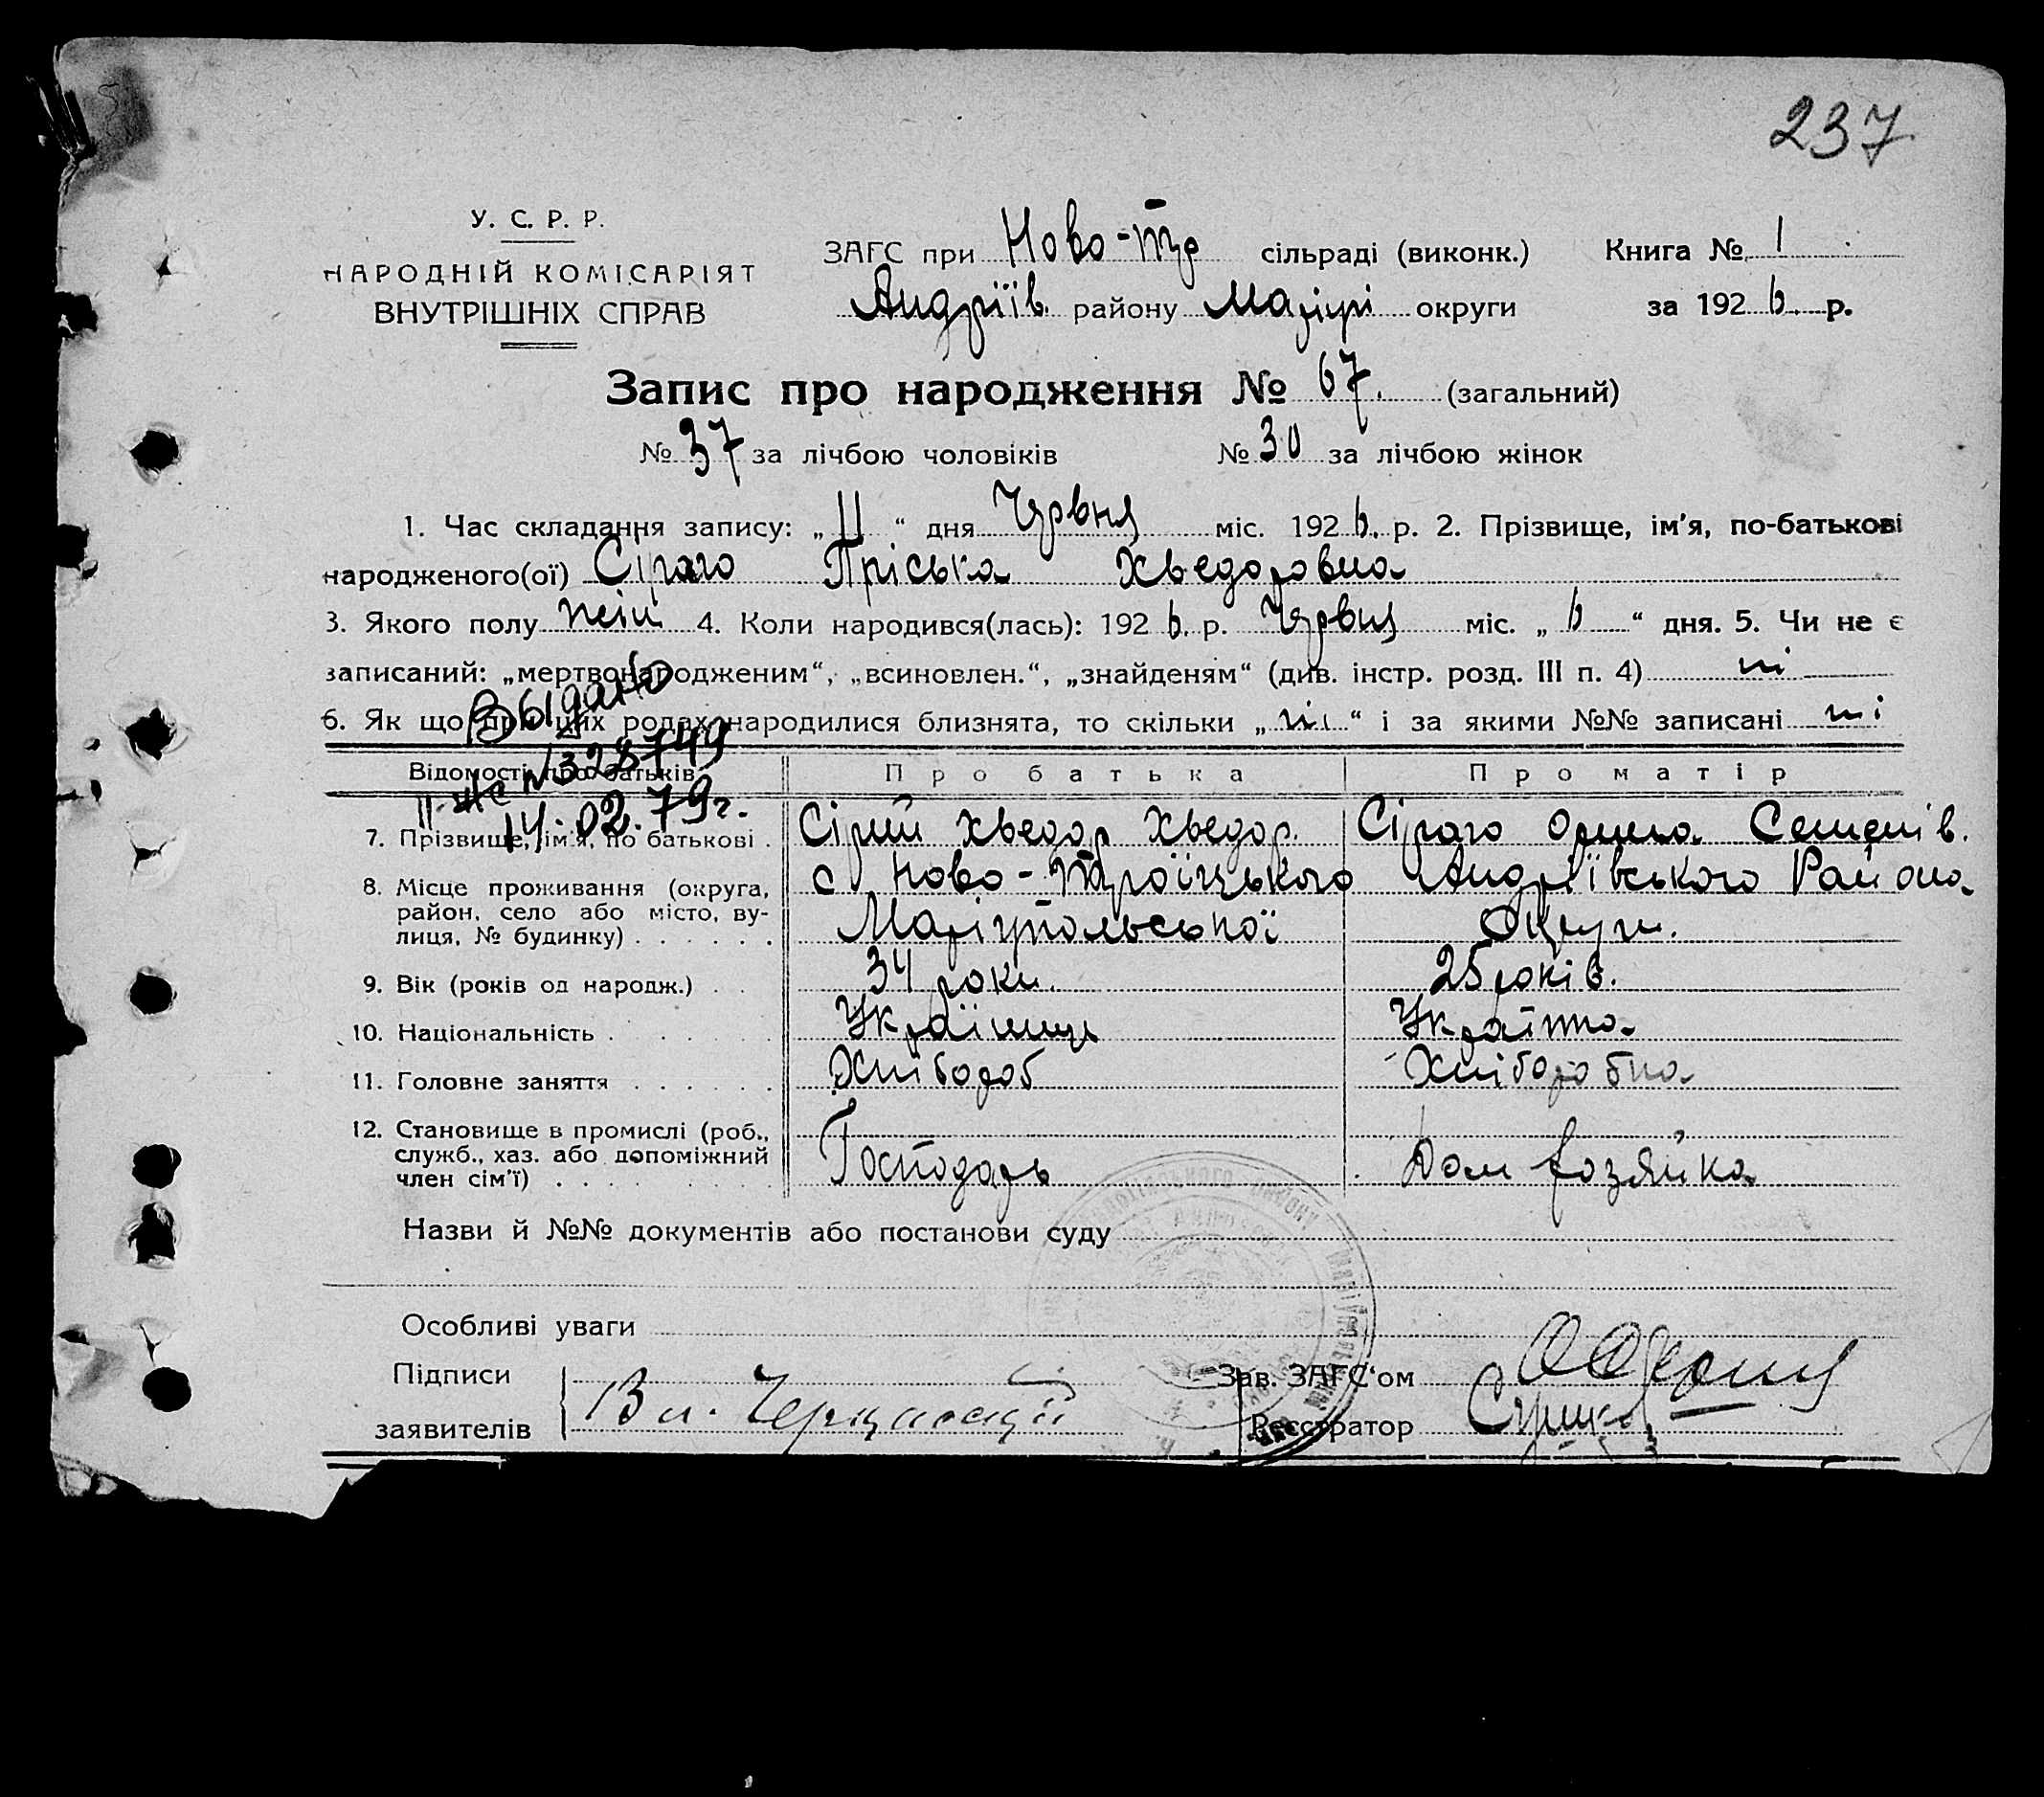 237
У. С. Р. Р.
НАРОДНІЙ КОМІСАРІЯТ
ВНУТРІШНІХ СПРАВ
ЗАГС при Ново-Тр сільраді (виконк.) Книга № 1
Андріїв. району Маріуп округи за 1926. р.
Запис про народження № 67. (загальний)
№ 37 за лічбою чоловіків № 30 за лічбою жінок
1. Час складання запису: „ 11 “ дня Червня міс. 1926. р. 2. Прізвище, ім'я, по-батькові
народженого(ої) Сірого Пріська Хведоровна
3. Якого полу жін 4. Коли народився(лась): 1926. р. Червня міс. „ 6 “ дня. 5. Чи не є
записаний: „мертвонародженим“, „всиновлен.“, „знайденям“ (див. інстр. розд. III п. 4) ні
6. Як що при цих родах народилися близнята, то скільки „ ні “ і за якими №№ записані ні
Выдано
II-ЖС №328749
14.02.79г.
Відомості про батьків Про батька Про матір
7. Прізвище, ім'я, по батькові . Сірий Хведор Хведор. Сірого Орина Семенів.
8. Місце проживання (округа, район, село або місто, вулиця, № будинку) с Ново-Троїцького Андріївського Района
Маріупольської Округи.
9. Вік (років од народж.) 34 роки. 25 років.
10. Національність Українець Українка
11. Головне заняття Хлібороб Хліборобка
12. Становище в промислі (роб.,
служб., хаз. або допоміжний
член сім'ї) Господарь Дом хозяйка
Назви й №№ документів або постанови суду
Особливі уваги
Підписи
заявителів
Зав. ЗАГС'ом
Реєстратор